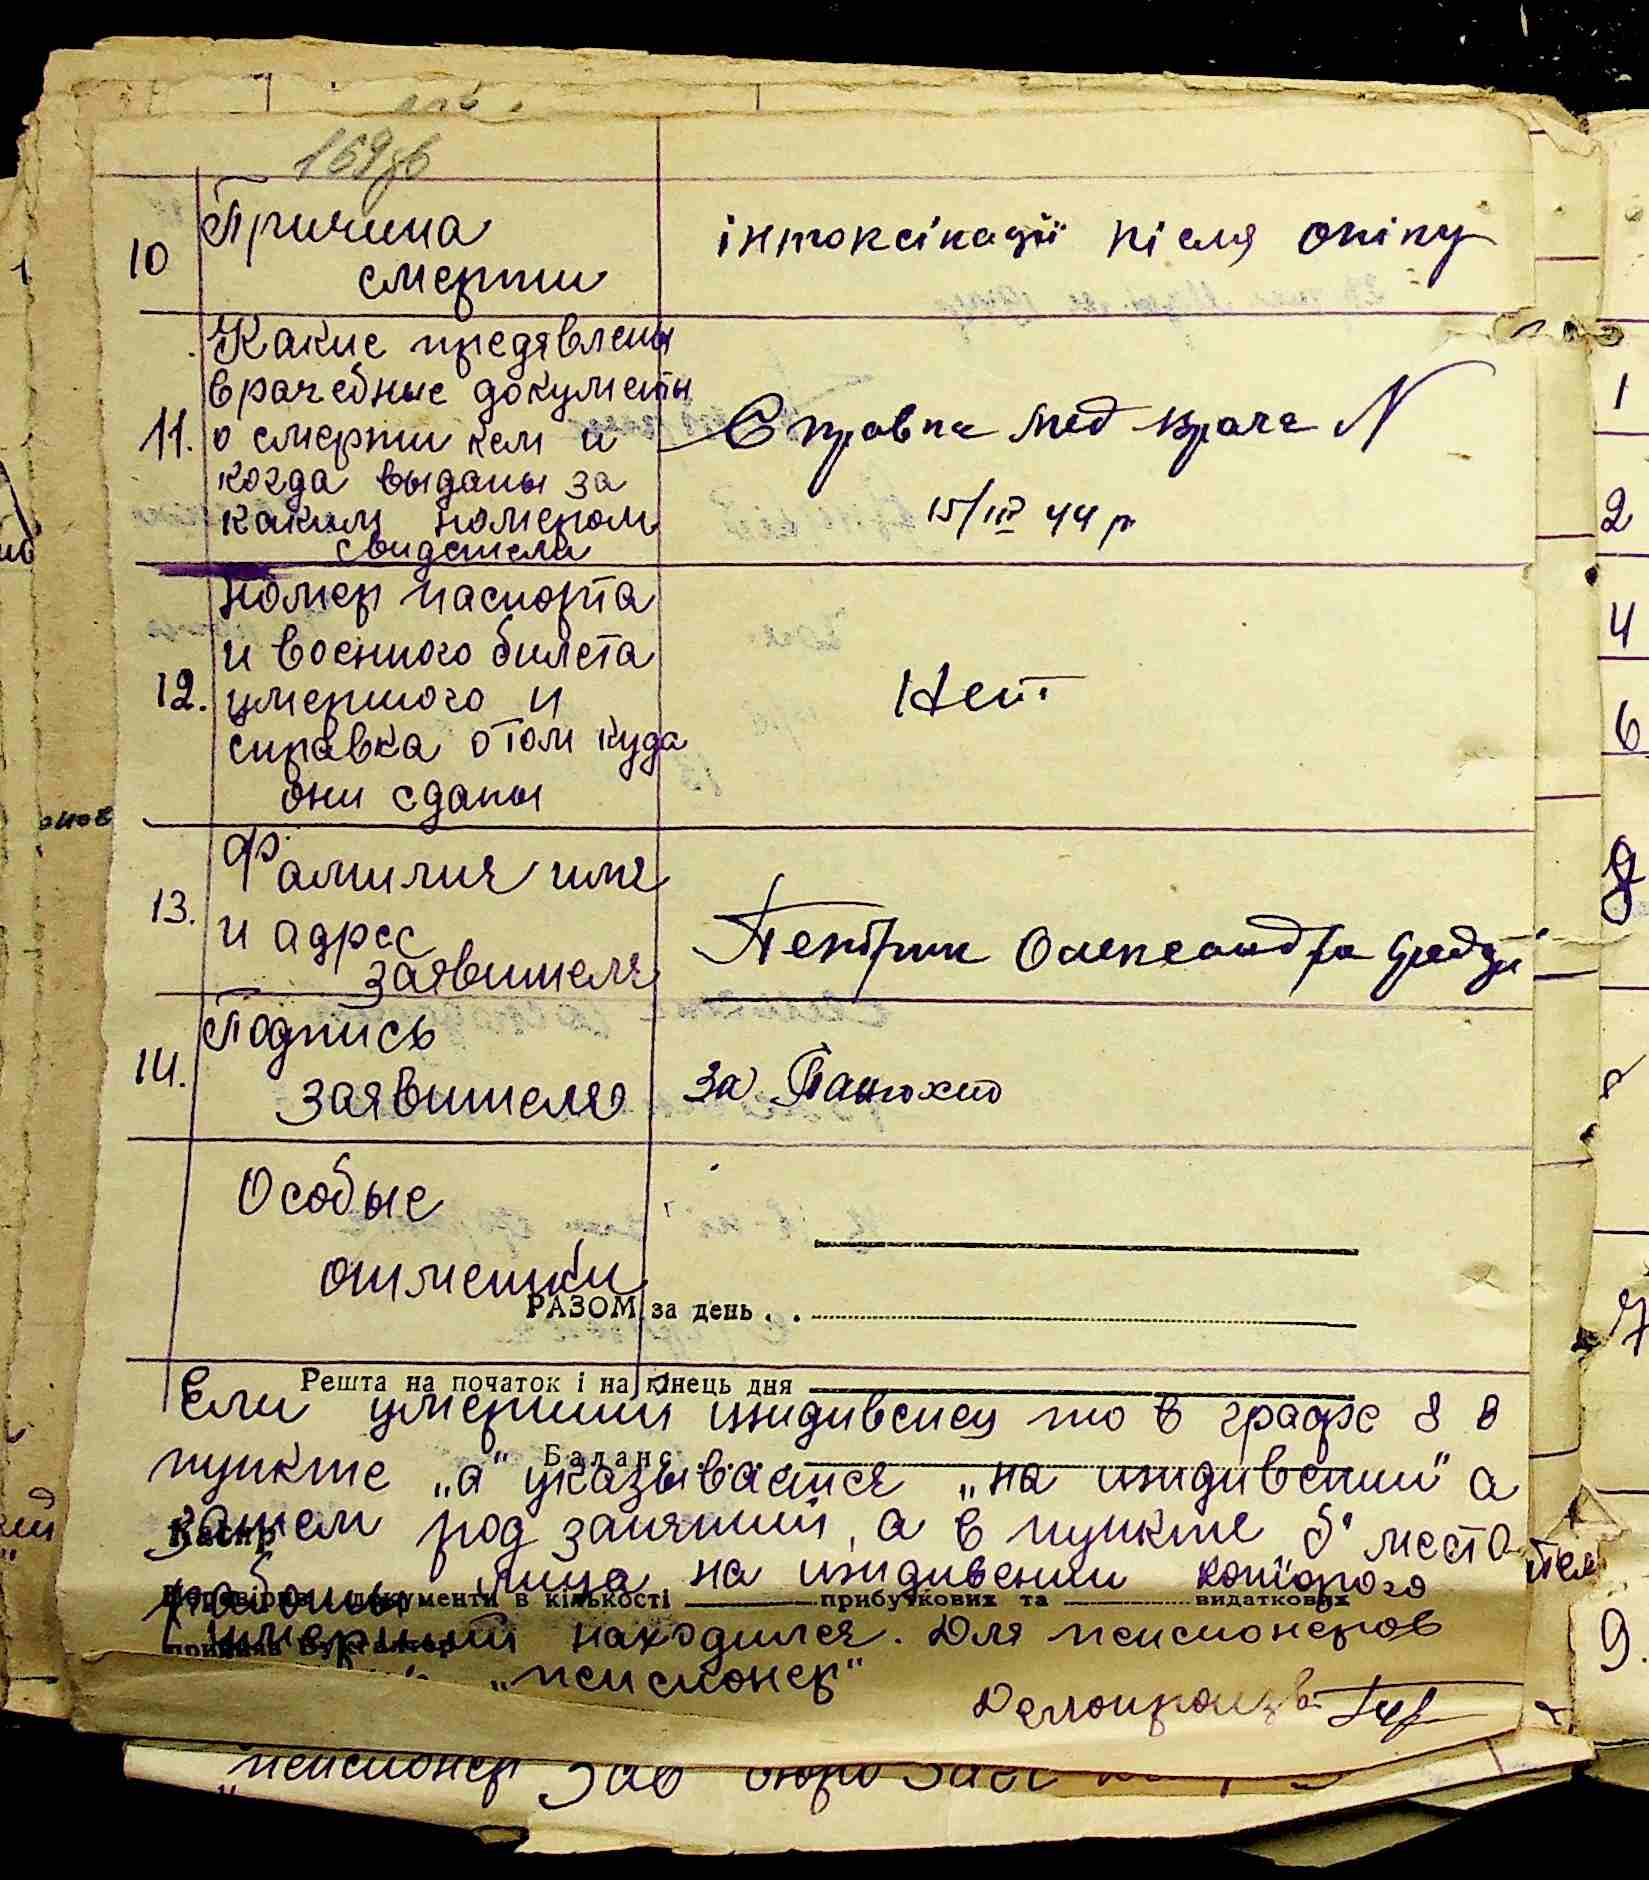 169зв
10 Причина
смерти
інтоксікації після опіку
Какие предявлены
врачебные документы
11. о смерти кем и
когда выданы за
каким номером
свидетели
Справка мед врача N
15/III 44 р
номер паспорта
и военного билета
12. умершого и
справка отом куда
они сданы
Нет
Фамилия имя
13. и адрес
заявителя
Олександра
Подпись
14. заявителя
за
Особые
отметки
РАЗОМ за день . .
Решта на початок і на кінець дня
Если умерший иждивенец то в графе 8 в
Баланс
пункте „а" указывается „на иждивении" а
затем род занятий, а в пункте б' места
Касир
работы лица на иждивении которого
документи в кількості прибуткових та видаткових
умерший находился. Для пенсионеров
прийняв Бухгалтер
„пенсионер"
Делопроизв.
пенсионер Зав бюро
1
2
4
6
8
7
9.